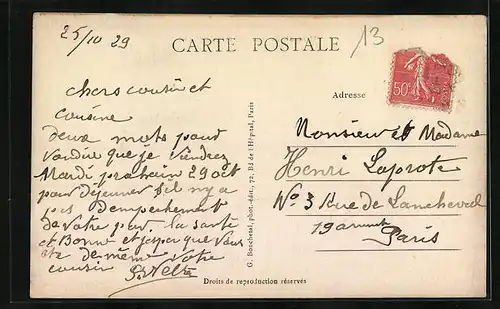 25/10 29
13
CARTE POSTALE
chers cousin et
cousine
deux mots pour
vou dire que je viendrez
Mardi prochain 29 oct
pour déjeuner s'il n'y a
pas d'empechement
de votre par. la santé
et Bonne et j'espor que vous
ete de même votre
cousin
G. Bouchetal, phot.-édit., 72, Bd de l'Hôpital, Paris
Adresse
50c
Monsieur et Madame
Henri Laprote
No 3 Rue de Lancheval
19 arr
Paris
Droits de reproduction réservés